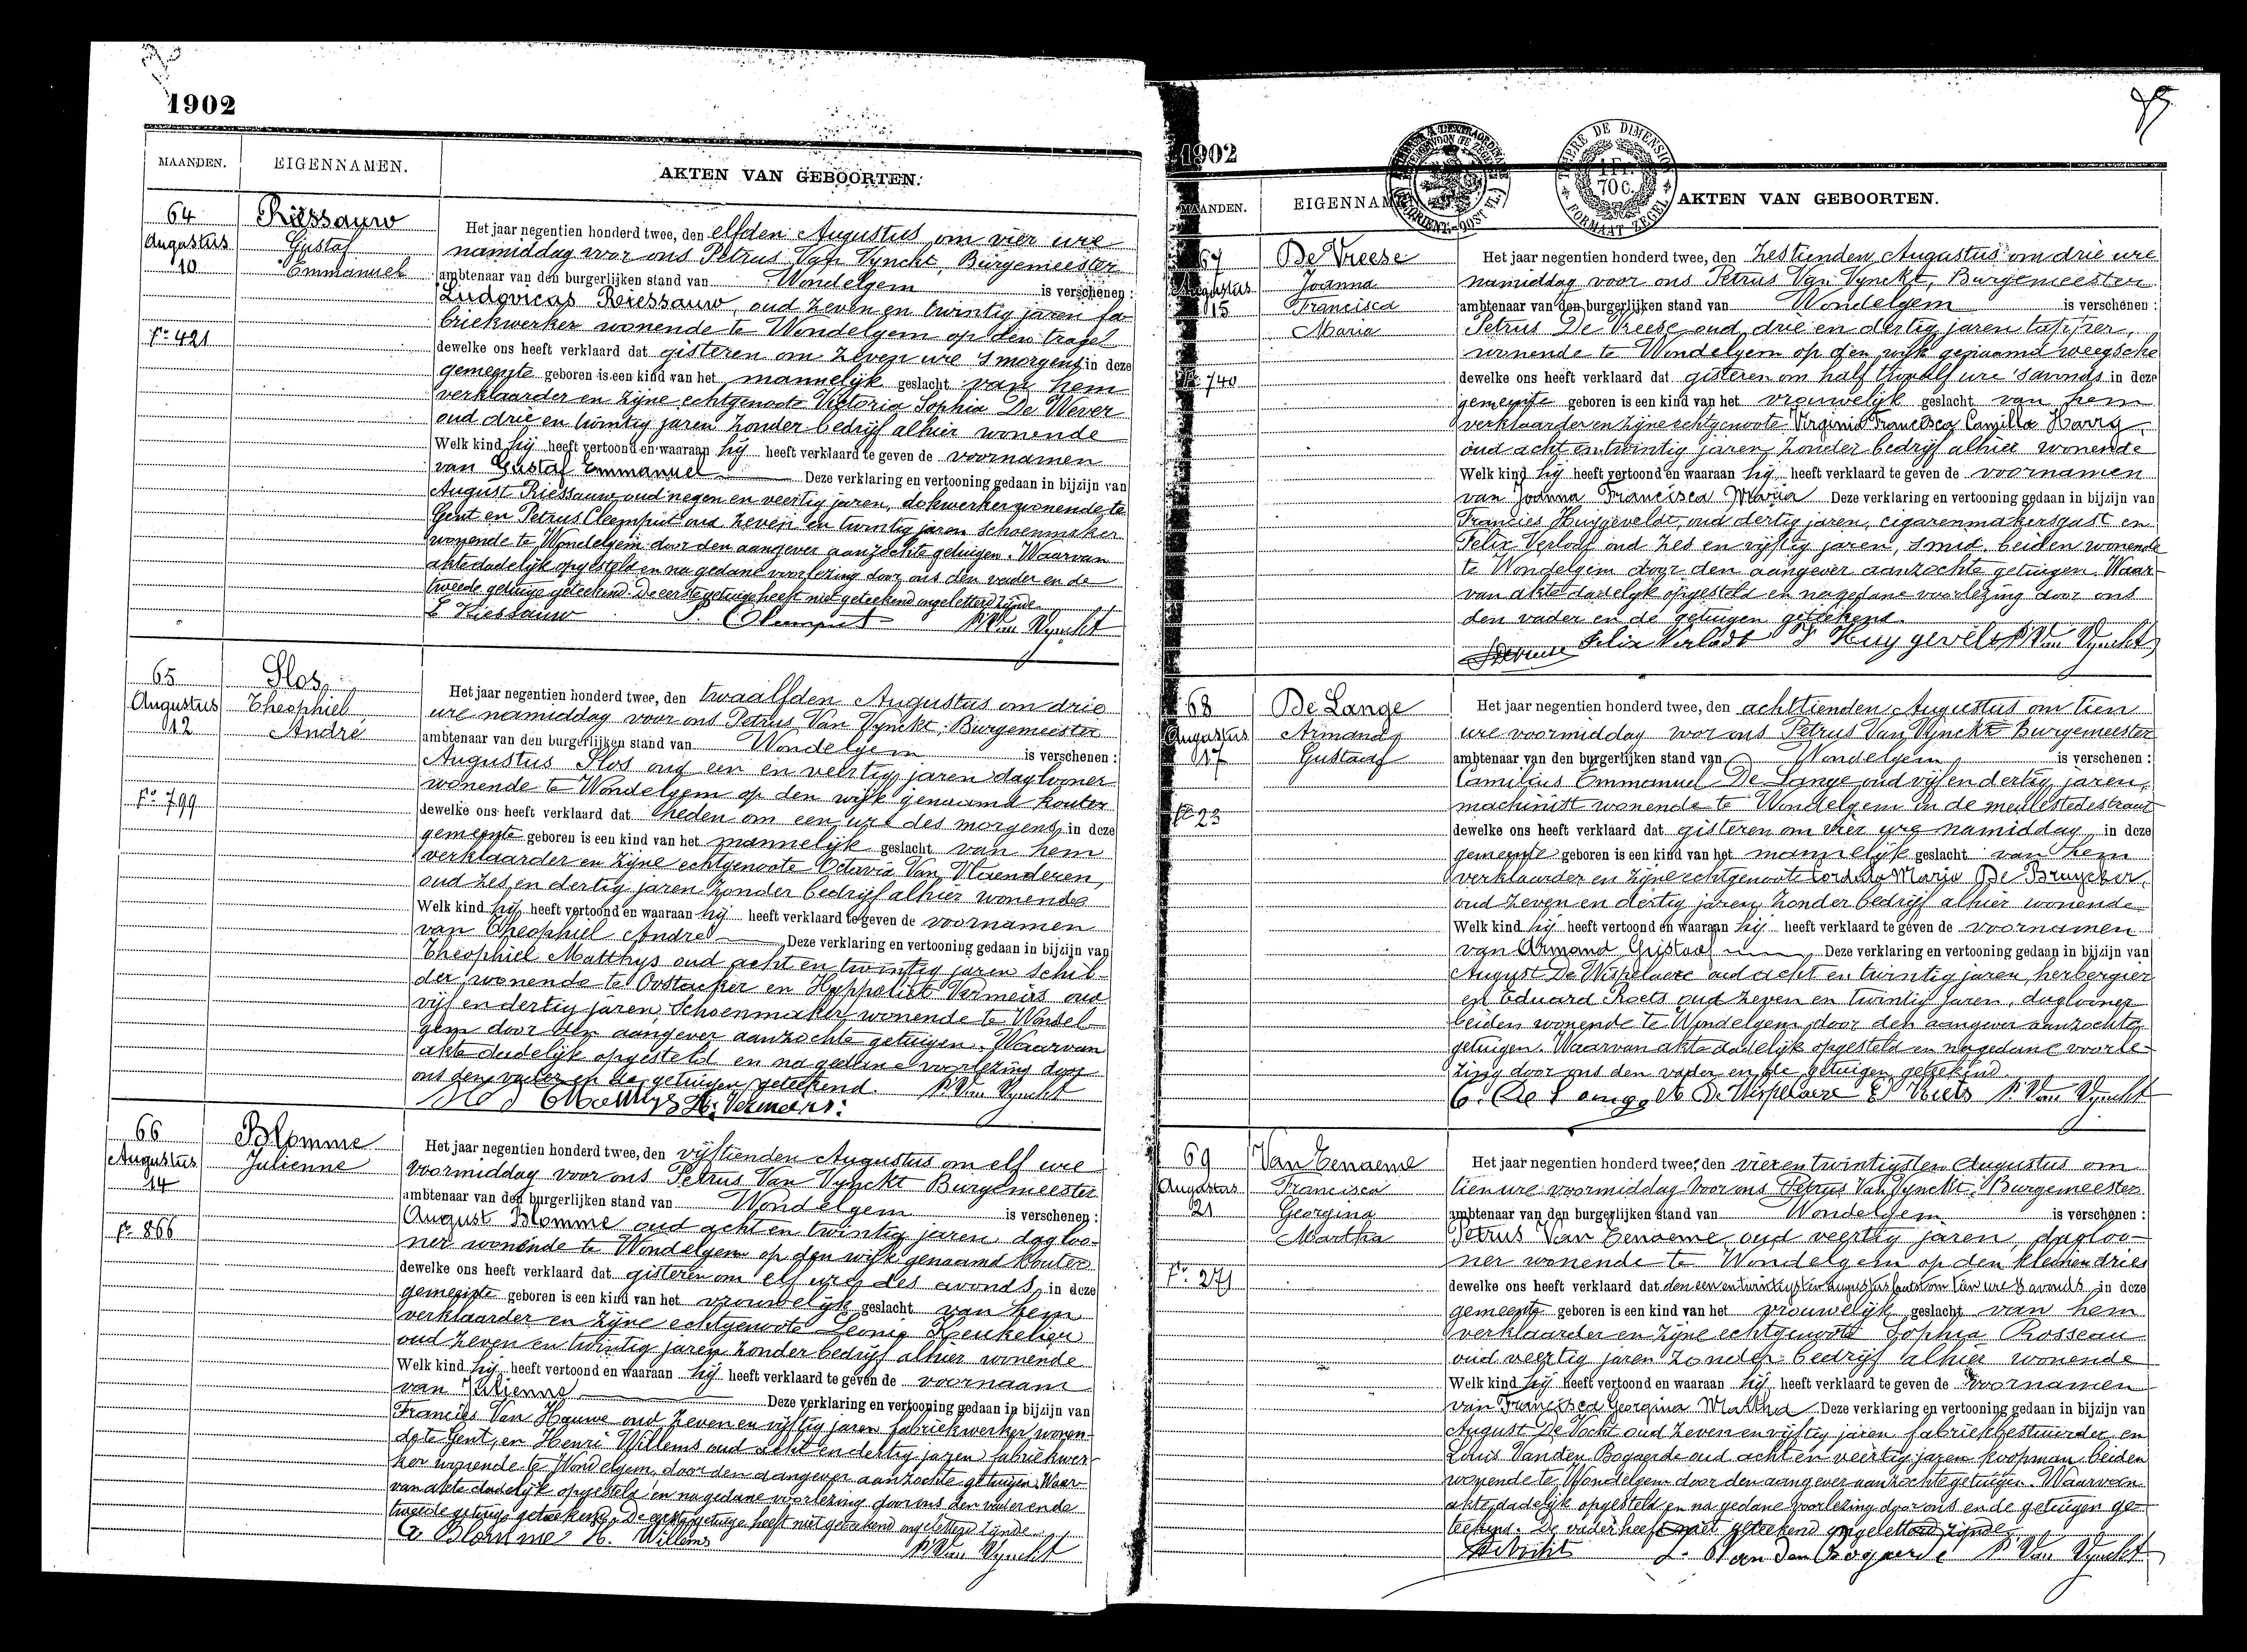 1902
MAANDEN. EIGENNAMEN. AKTEN VAN GEBOORTEN.
64
Augustus
10
Fo 421
Riessauw
Gustaf
Emmanuel
Het jaar negentien honderd twee, den elfden Augustus om vier ure
namiddag voor ons Petrus Van Vynckt, Burgemeester
ambtenaar van den burgerlijken stand van Wondelgem is verschenen :
Ludovicus Riessauw, oud zeven en twintig jaren fa-
briekwerker wonende te Wondelgem op den tragel
dewelke ons heeft verklaard dat gisteren om zeven ure 's morgens in deze
gemeente geboren is een kind van het mannelijk geslacht van hem
verklaarder en zijne echtgenoote Victoria Sophia De Wever
oud drie en twintig jaren zonder bedrijf alhier wonende
Welk kind hij heeft vertoond en waaraan hij heeft verklaard te geven de voornamen
van Gustaf Emmanuel Deze verklaring en vertooning gedaan in bijzijn van
August Riessauw oud negen en veertig jaren, dokwerker wonende te
Gent en Petrus Cleemput oud zeven en twintig jaren schoenmaker
wonende te Wondelgem door den aangever aanzochte getuigen. Waarvan
akte dadelijk opgesteld en na gedane voorlezing door ons den vader en de
tweede getuige geteekend. De eerste getuige heeft niet geteekend ongeletterd zijnde.
L Riessauw P. Cleemput P. Van Vynckt
65
Augustus
12
Fo 799
Slos
Theophiel
André
Het jaar negentien honderd twee, den twaalfden Augustus om drie
ure namiddag voor ons Petrus Van Vynckt, Burgemeester
ambtenaar van den burgerlijken stand van Wondelgem is verschenen :
Augustus Slos oud een en veertig jaren daglooner
wonende te Wondelgem op den wijk genaamd kouter
dewelke ons heeft verklaard dat heden om een ure des morgens in deze
gemeente geboren is een kind van het mannelijk geslacht van hem
verklaarder en zijne echtgenoote Octavia Van Vlaenderen,
oud zes en dertig jaren zonder bedrijf alhier wonende
Welk kind hij heeft vertoond en waaraan hij heeft verklaard te geven de voornamen
van Theophiel André Deze verklaring en vertooning gedaan in bijzijn van
Theophiel Matthys oud acht en twintig jaren schil-
der wonende te Oostacker en Hyppoliet Vermeirs oud
vijf en dertig jaren, schoenmaker wonende te Wondel-
gem door den aangever aanzochte getuigen. Waarvan
akte dadelijk opgesteld en na gedane voorlezing door
ons den vader en de getuigen geteekend. P. Van Vynckt
Slos Matthys H. Vermeirs.
66
Augustus
14
Fo 866
Blomme
Julienne
Het jaar negentien honderd twee, den vijftienden Augustus om elf ure
voormiddag voor ons Petrus Van Vynckt Burgemeester
ambtenaar van den burgerlijken stand van Wondelgem is verschenen :
August Blomme oud acht en twintig jaren dagloo-
ner wonende te Wondelgem op den wijk genaamd kouter
dewelke ons heeft verklaard dat gisteren om elf ure des avonds in deze
gemeente geboren is een kind van het vrouwelijk geslacht van hem
verklaarder en zijne echtgenoote Leonie Keukelier
oud zeven en twintig jaren zonder bedrijf alhier wonende
Welk kind hij heeft vertoond en waaraan hij heeft verklaard te geven de voornaam
van Julienne Deze verklaring en vertooning gedaan in bijzijn van
Francies Van Hauwe oud zeven en vijftig jaren fabriekwerker wonen-
de te Gent, en Henri Willems oud acht en dertig jaren fabriekwer-
ker wonende te Wondelgem, door den aangever aanzochte getuigen. Waar-
van akte dadelijk opgesteld en na gedane voorlezing door ons den vader en de
tweede getuige geteekend. De eerste getuige heeft niet geteekend ongeletterd zijnde.
A Blomme H. Willems P. Van Vynckt
1902
MAANDEN. EIGENNAMEN. AKTEN VAN GEBOORTEN.
TIMBRE DE DIMENSION
1 FR.
70 C.
FORMAAT ZEGEL
67
Augustus
15
Fo 740
De Vreese
Joanna
Francisca
Maria
Het jaar negentien honderd twee, den zestienden Augustus om drie ure
namiddag voor ons Petrus Van Vynckt, Burgemeester
ambtenaar van den burgerlijken stand van Wondelgem is verschenen :
Petrus De Vreese oud drie en dertig jaren,
wonende te Wondelgem op den wijk genaamd weegsche
dewelke ons heeft verklaard dat gisteren om half twaalf ure 's avonds in deze
gemeente geboren is een kind van het vrouwelijk geslacht van hem
verklaarder en zijne echtgenoote Virginia Francisca Camilla
oud acht en twintig jaren zonder bedrijf alhier wonende
Welk kind hij heeft vertoond en waaraan hij heeft verklaard te geven de voornamen
van Joanna Francisca Maria Deze verklaring en vertooning gedaan in bijzijn van
Francies Huygevelde, oud dertig jaren, cigarenmakersgast en
Felix Verlodt oud zes en vijftig jaren, smid, beiden wonende
te Wondelgem door den aangever aanzochte getuigen. Waar-
van akte dadelijk opgesteld en na gedane voorlezing door ons
den vader en de getuigen geteekend.
Felix Verlodt F Huygevelde P. Van Vynckt
68
Augustus
17
Fo 23
De Lange
Armand
Gustaaf
Het jaar negentien honderd twee, den achttienden Augustus om tien
ure voormiddag voor ons Petrus Van Vynckt Burgemeester
ambtenaar van den burgerlijken stand van Wondelgem is verschenen :
Camilius Emmanuel De Lange oud vijf en dertig jaren,
machinist wonende te Wondelgem in de meulestedestraat
dewelke ons heeft verklaard dat gisteren om vier ure namiddag in deze
gemeente geboren is een kind van het mannelijk geslacht van hem
verklaarder en zijne echtgenoote Cordula Maria De Bruycker,
oud zeven en dertig jaren zonder bedrijf alhier wonende
Welk kind hij heeft vertoond en waaraan hij heeft verklaard te geven de voornamen
van Armand Gustaaf Deze verklaring en vertooning gedaan in bijzijn van
August De Wispelaere oud acht en twintig jaren, herbergier
en Eduard Roets oud zeven en twintig jaren, daglooner
beiden wonende te Wondelgem door den aangever aanzochte
getuigen. Waarvan akte dadelijk opgesteld en na gedane voorle-
zing door ons den vader en de getuigen geteekend.
C. De Lange A De Wispelaere E Roets P. Van Vynckt
69
Augustus
21
Fo 271
Van Eenaeme
Francisca
Georgina
Martha
Het jaar negentien honderd twee, den vier en twintigsten Augustus om
tien ure voormiddag voor ons Petrus Van Vynckt, Burgemeester
ambtenaar van den burgerlijken stand van Wondelgem is verschenen :
Petrus Van Eenaeme oud veertig jaren, dagloo-
ner wonende te Wondelgem op den kleinen dries
dewelke ons heeft verklaard dat den een en twintigsten augustus laatst om tien ure 's avonds in deze
gemeente geboren is een kind van het vrouwelijk geslacht van hem
verklaarder en zijne echtgenoote Sophia Rosseau
oud veertig jaren zonder bedrijf alhier wonende
Welk kind hij heeft vertoond en waaraan hij heeft verklaard te geven de voornamen
van Francisca Georgina Martha Deze verklaring en vertooning gedaan in bijzijn van
August De Vocht oud zeven en vijftig jaren fabriekbestuurder en
Louis Vanden Bogaerde oud acht en veertig jaren koopman beiden
wonende te Wondelgem door den aangever aanzochte getuigen. Waarvan
akte dadelijk opgesteld en na gedane voorlezing door ons en de getuigen ge-
teekend. De vader heeft niet geteekend ongeletterd zijnde.
L. Van den Bogaerde P. Van Vynckt